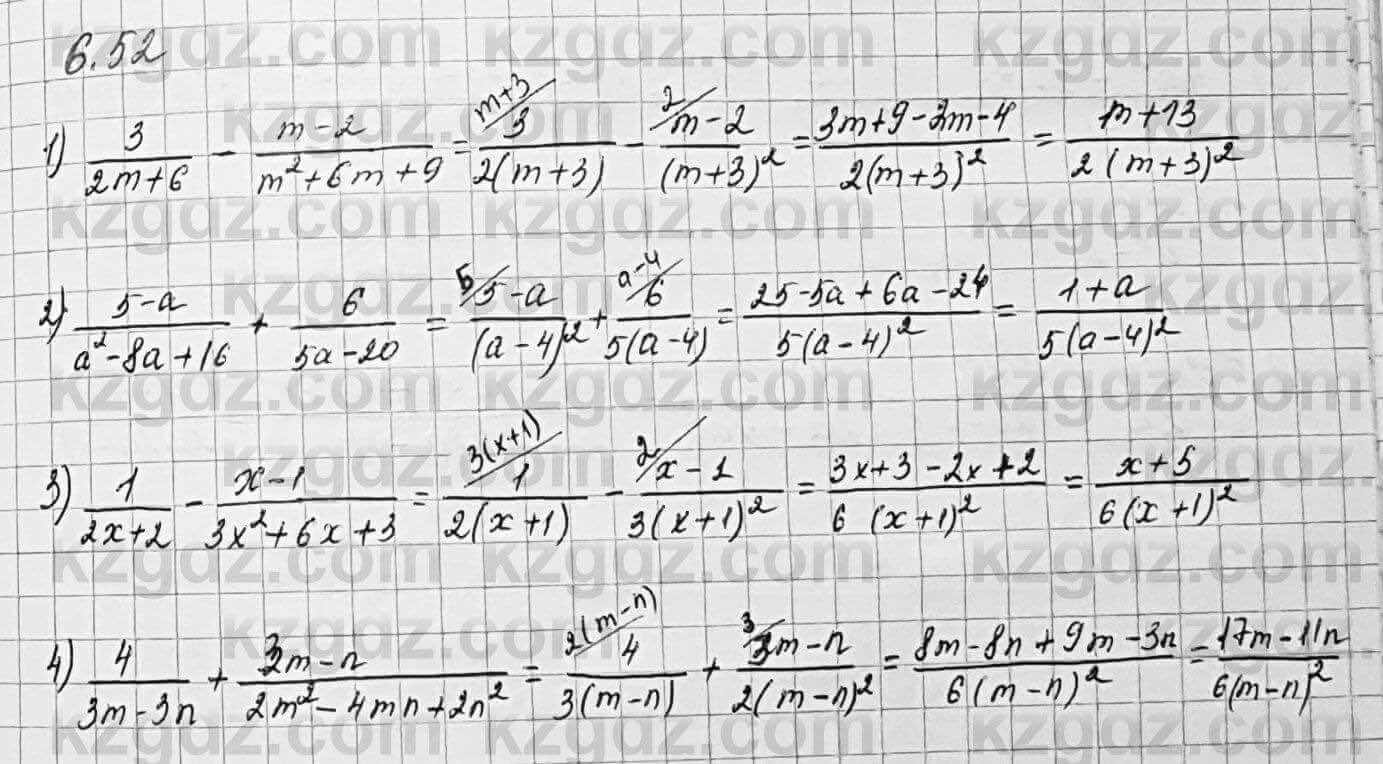 6.52
1) 3/(2m+6) - (m-2)/(m²+6m+9) = m+3/ 3/(2(m+3)) - 2/ (m-2)/(m+3)² = (3m+9-2m-4)/(2(m+3)²) = (m+13)/(2(m+3)²)
2) (5-a)/(a²-8a+16) + 6/(5a-20) = 5/ (5-a)/(a-4)² + a-4/ 6/(5(a-4)) = (25-5a+6a-24)/(5(a-4)²) = (1+a)/(5(a-4)²)
3) 1/(2x+2) - (x-1)/(3x²+6x+3) = 3(x+1)/ 1/(2(x+1)) - 2/ (x-1)/(3(x+1)²) = (3x+3-2x+2)/(6(x+1)²) = (x+5)/(6(x+1)²)
4) 4/(3m-3n) + (3m-n)/(2m²-4mn+2n²) = 2(m-n)/ 4/(3(m-n)) + 3/ (3m-n)/(2(m-n)²) = (8m-8n+9m-3n)/(6(m-n)²) = (17m-11n)/(6(m-n)²)
kzgdz.com